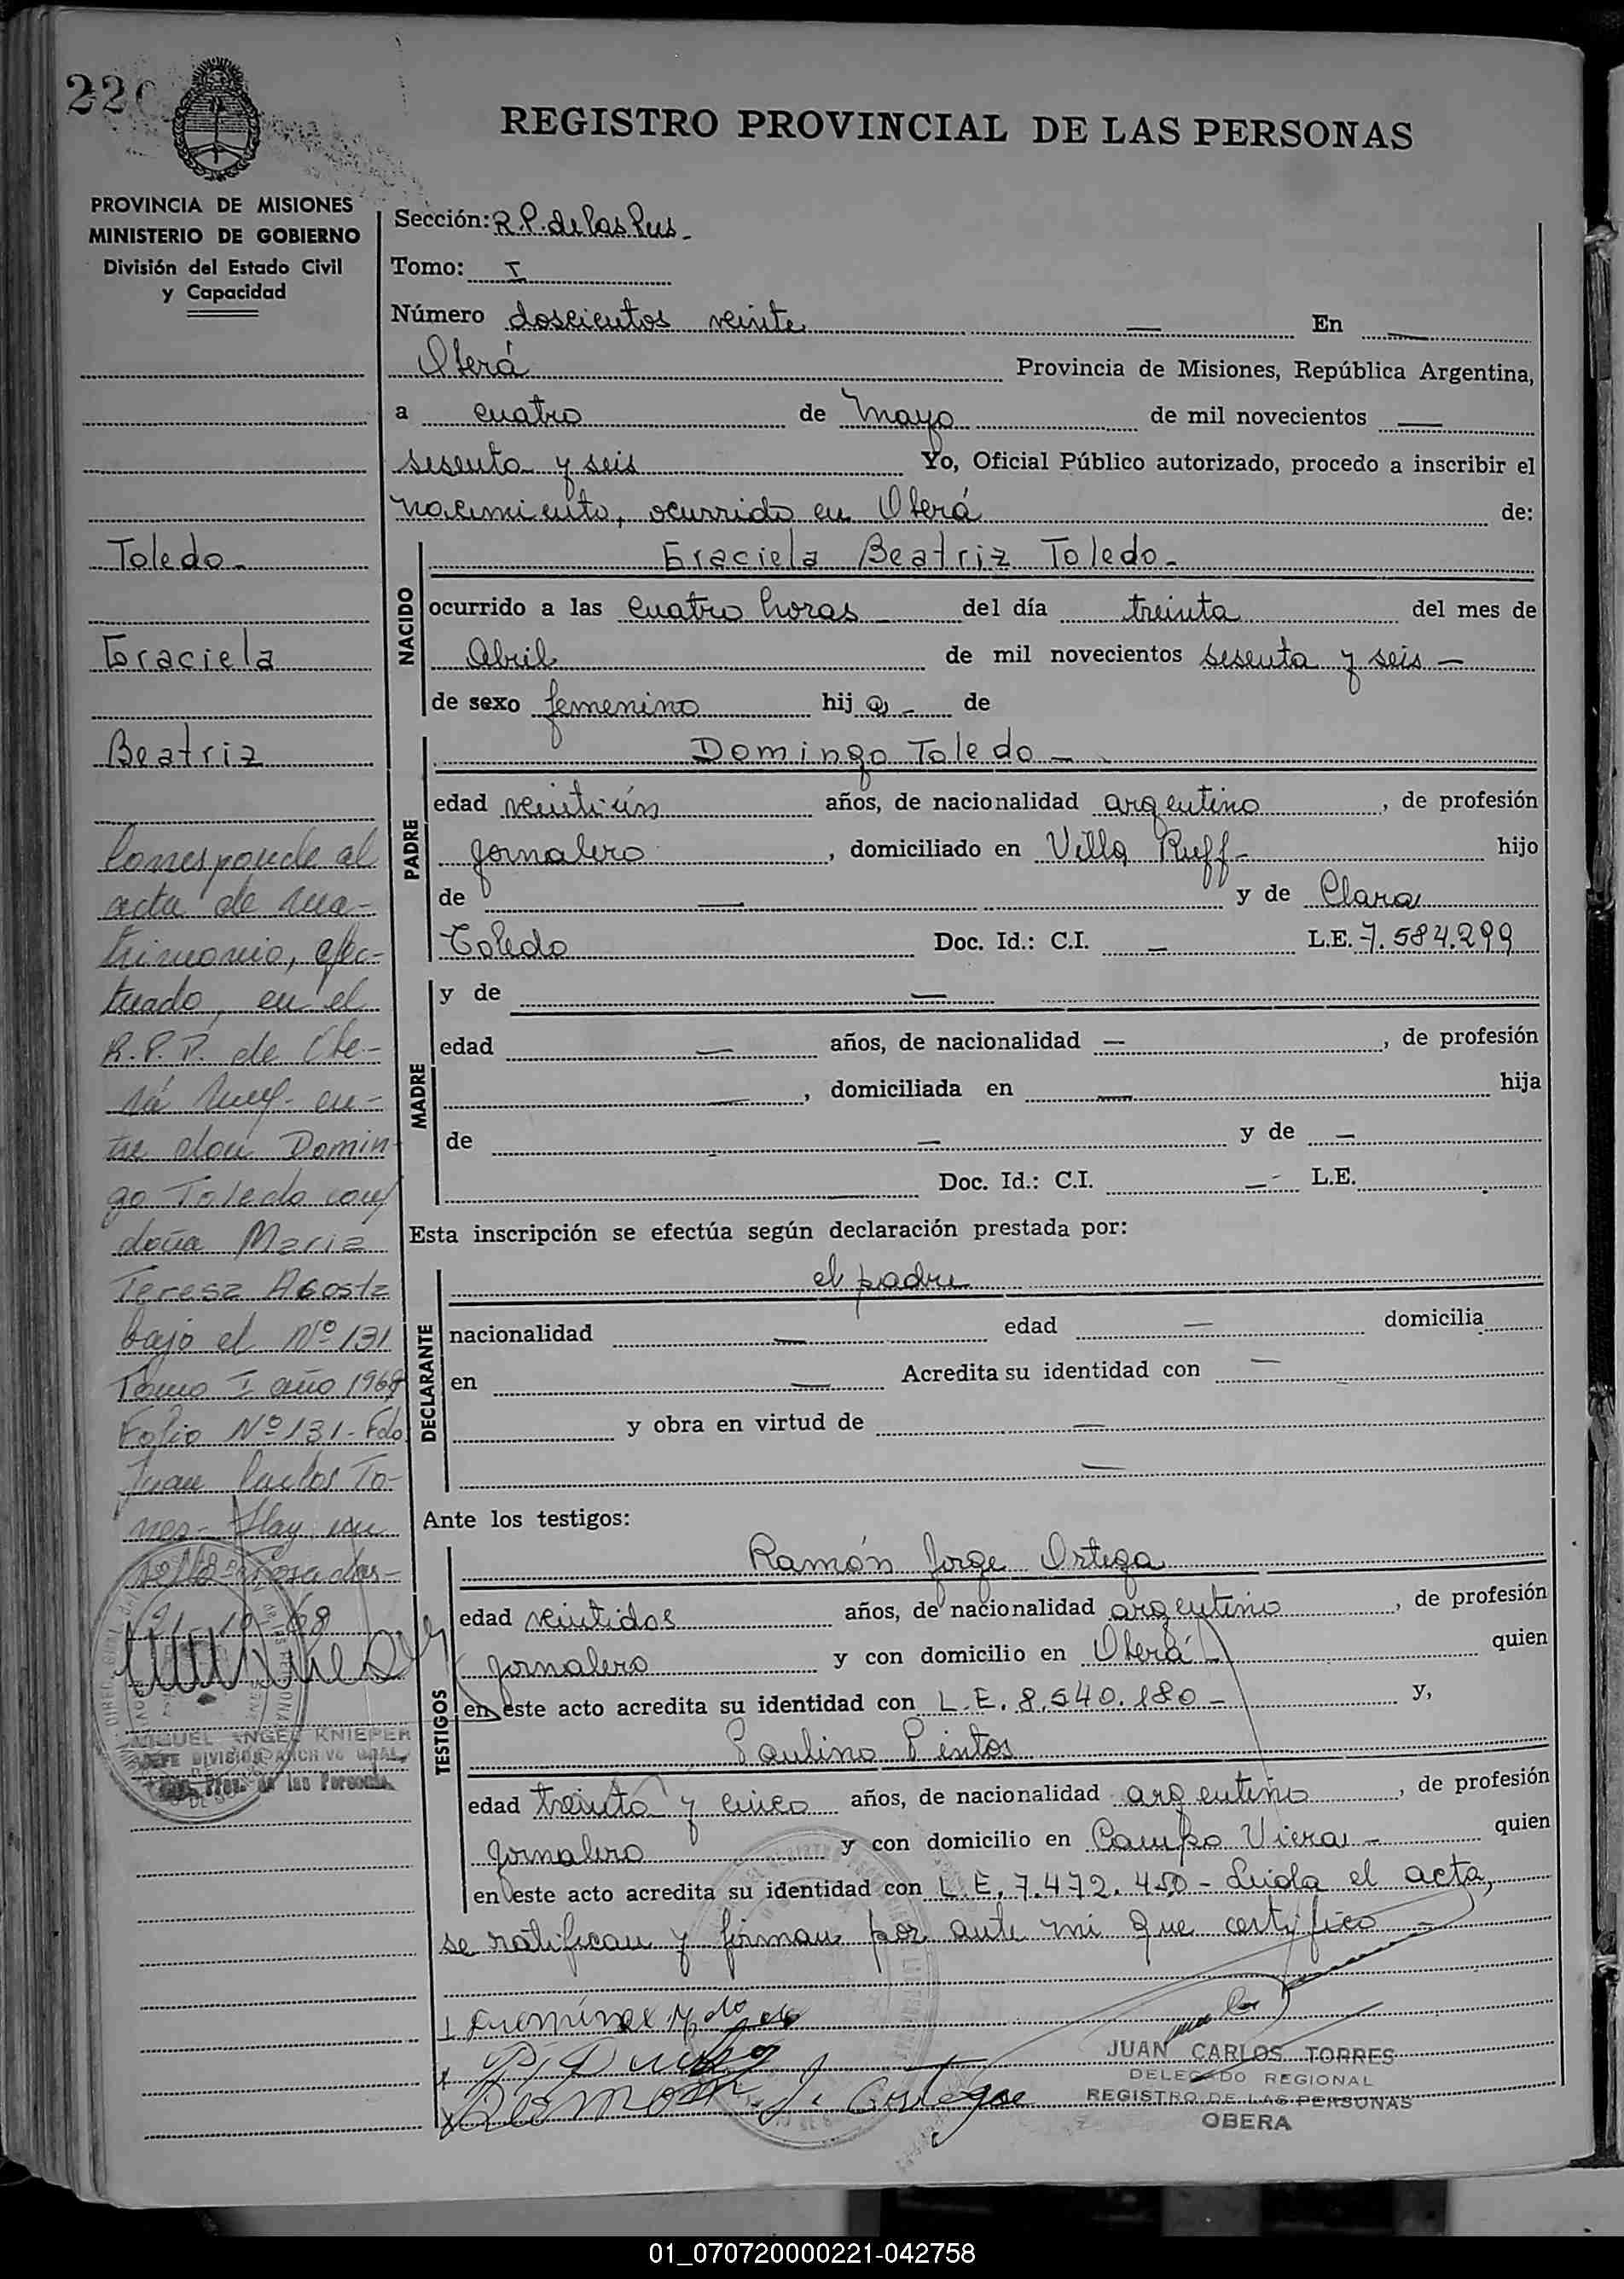 220
REGISTRO PROVINCIAL DE LAS PERSONAS
PROVINCIA DE MISIONES
MINISTERIO DE GOBIERNO
División del Estado Civil
y Capacidad
Toledo-
Graciela
Beatriz
Corresponde al
acta de ma-
trimonio, efec-
tuado, en el
R.P.P. de Obe-
rá en-
tre don Domin-
go Toledo con
doña Maria
Teresa Acosta
bajo el Nº 131
Tomo I año 1968
Folio Nº 131- Fdo
Juan Carlos To-
rres- Hay un
sello- Posadas-
21-10-68
MIGUEL ANGEL KNIEPER
JEFE DIVISION ARCHIVO GRAL.
Prov. de las Personas
Sección: R.P. de las Pers-
Tomo: I
Número doscientos veinte — En —
Oberá Provincia de Misiones, República Argentina,
a cuatro de Mayo de mil novecientos —
sesenta y seis Yo, Oficial Público autorizado, procedo a inscribir el
nacimiento, ocurrido en Oberá de:
NACIDO
Graciela Beatriz Toledo-
ocurrido a las cuatro horas - del día treinta del mes de
Abril de mil novecientos sesenta y seis —
de sexo femenino hija - de
PADRE
Domingo Toledo —
edad veintiún años, de nacionalidad argentino, de profesión
jornalero, domiciliado en Villa Ruff- hijo
de — y de Clara
Toledo Doc. Id.: C.I. — L.E. 7.584.299
MADRE
y de —
edad — años, de nacionalidad —, de profesión
—, domiciliada en — hija
de — y de —
— Doc. Id.: C.I. — L.E.
Esta inscripción se efectúa según declaración prestada por:
DECLARANTE
el padre
nacionalidad — edad — domicilia
en — Acredita su identidad con —
y obra en virtud de —
—
Ante los testigos:
TESTIGOS
Ramón Jorge Ortega
edad veintidos años, de nacionalidad argentino, de profesión
jornalero y con domicilio en Oberá - quien
en este acto acredita su identidad con L.E. 8.540.180 - y,
Paulino Pintos
edad treinta y cinco años, de nacionalidad argentino, de profesión
jornalero y con domicilio en Campo Viera - quien
en este acto acredita su identidad con L.E. 7.472.450 - Leida el acta,
se ratifican y firman por ante mi que certifico -
JUAN CARLOS TORRES
DELEGADO REGIONAL
REGISTRO DE LAS PERSONAS
OBERA
01_070720000221-042758